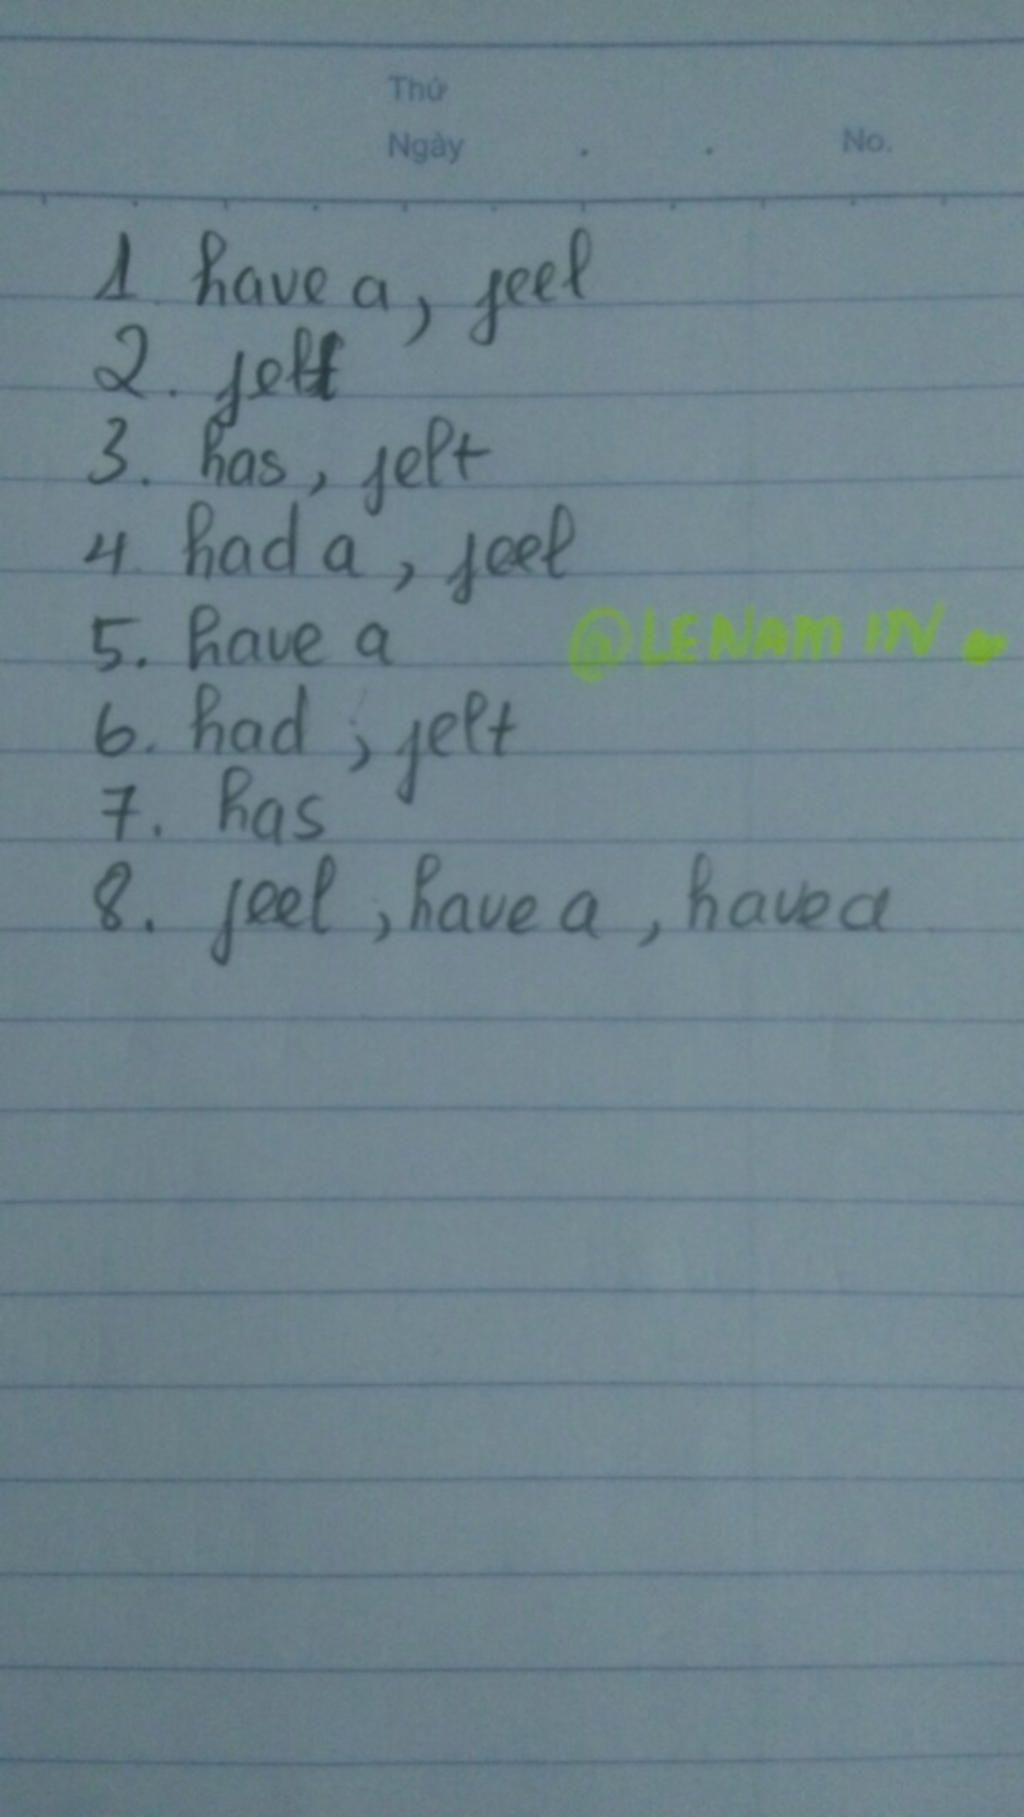 Thứ
Ngày . . No.
1. have a, feel
2. felt
3. has, felt
4. had a, feel
5. have a @LENAM IN
6. had, felt
7. has
8. feel, have a, have a